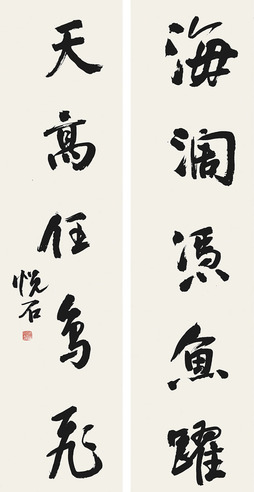 海阔凭鱼跃
天高任鸟飞
悦石